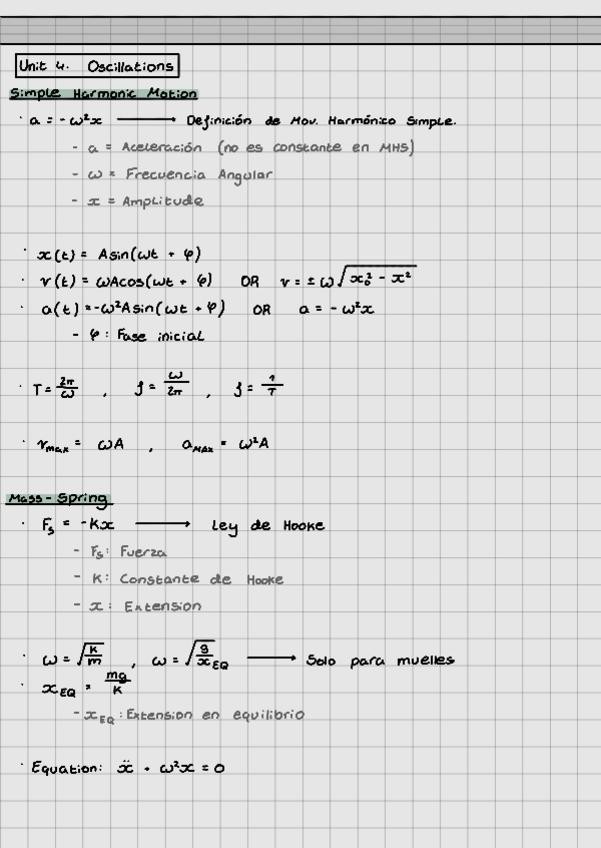 Unit 4. Oscillations
Simple Harmonic Motion
· a = -ω²x ⟶ Definición de Mov. Harmónico Simple.
- a = Aceleración (no es constante en MHS)
- ω = Frecuencia Angular
- x = Amplitude
· x(t) = Asin(ωt + φ)
· v(t) = ωAcos(ωt + φ) OR v = ± ω√(x₀² - x²)
· a(t) = -ω²Asin(ωt + φ) OR a = -ω²x
- φ: Fase inicial
· T = 2π/ω , f = ω/2π , f = 1/T
· vmax = ωA , aMAX = ω²A
Mass-Spring
· Fs = -Kx ⟶ Ley de Hooke
- Fs: Fuerza
- K: Constante de Hooke
- x: Extension
· ω = √(K/m) , ω = √(g/xEQ) ⟶ Solo para muelles
· xEQ = mg/K
- xEQ: Extension en equilibrio
· Equation: ẍ + ω²x = 0